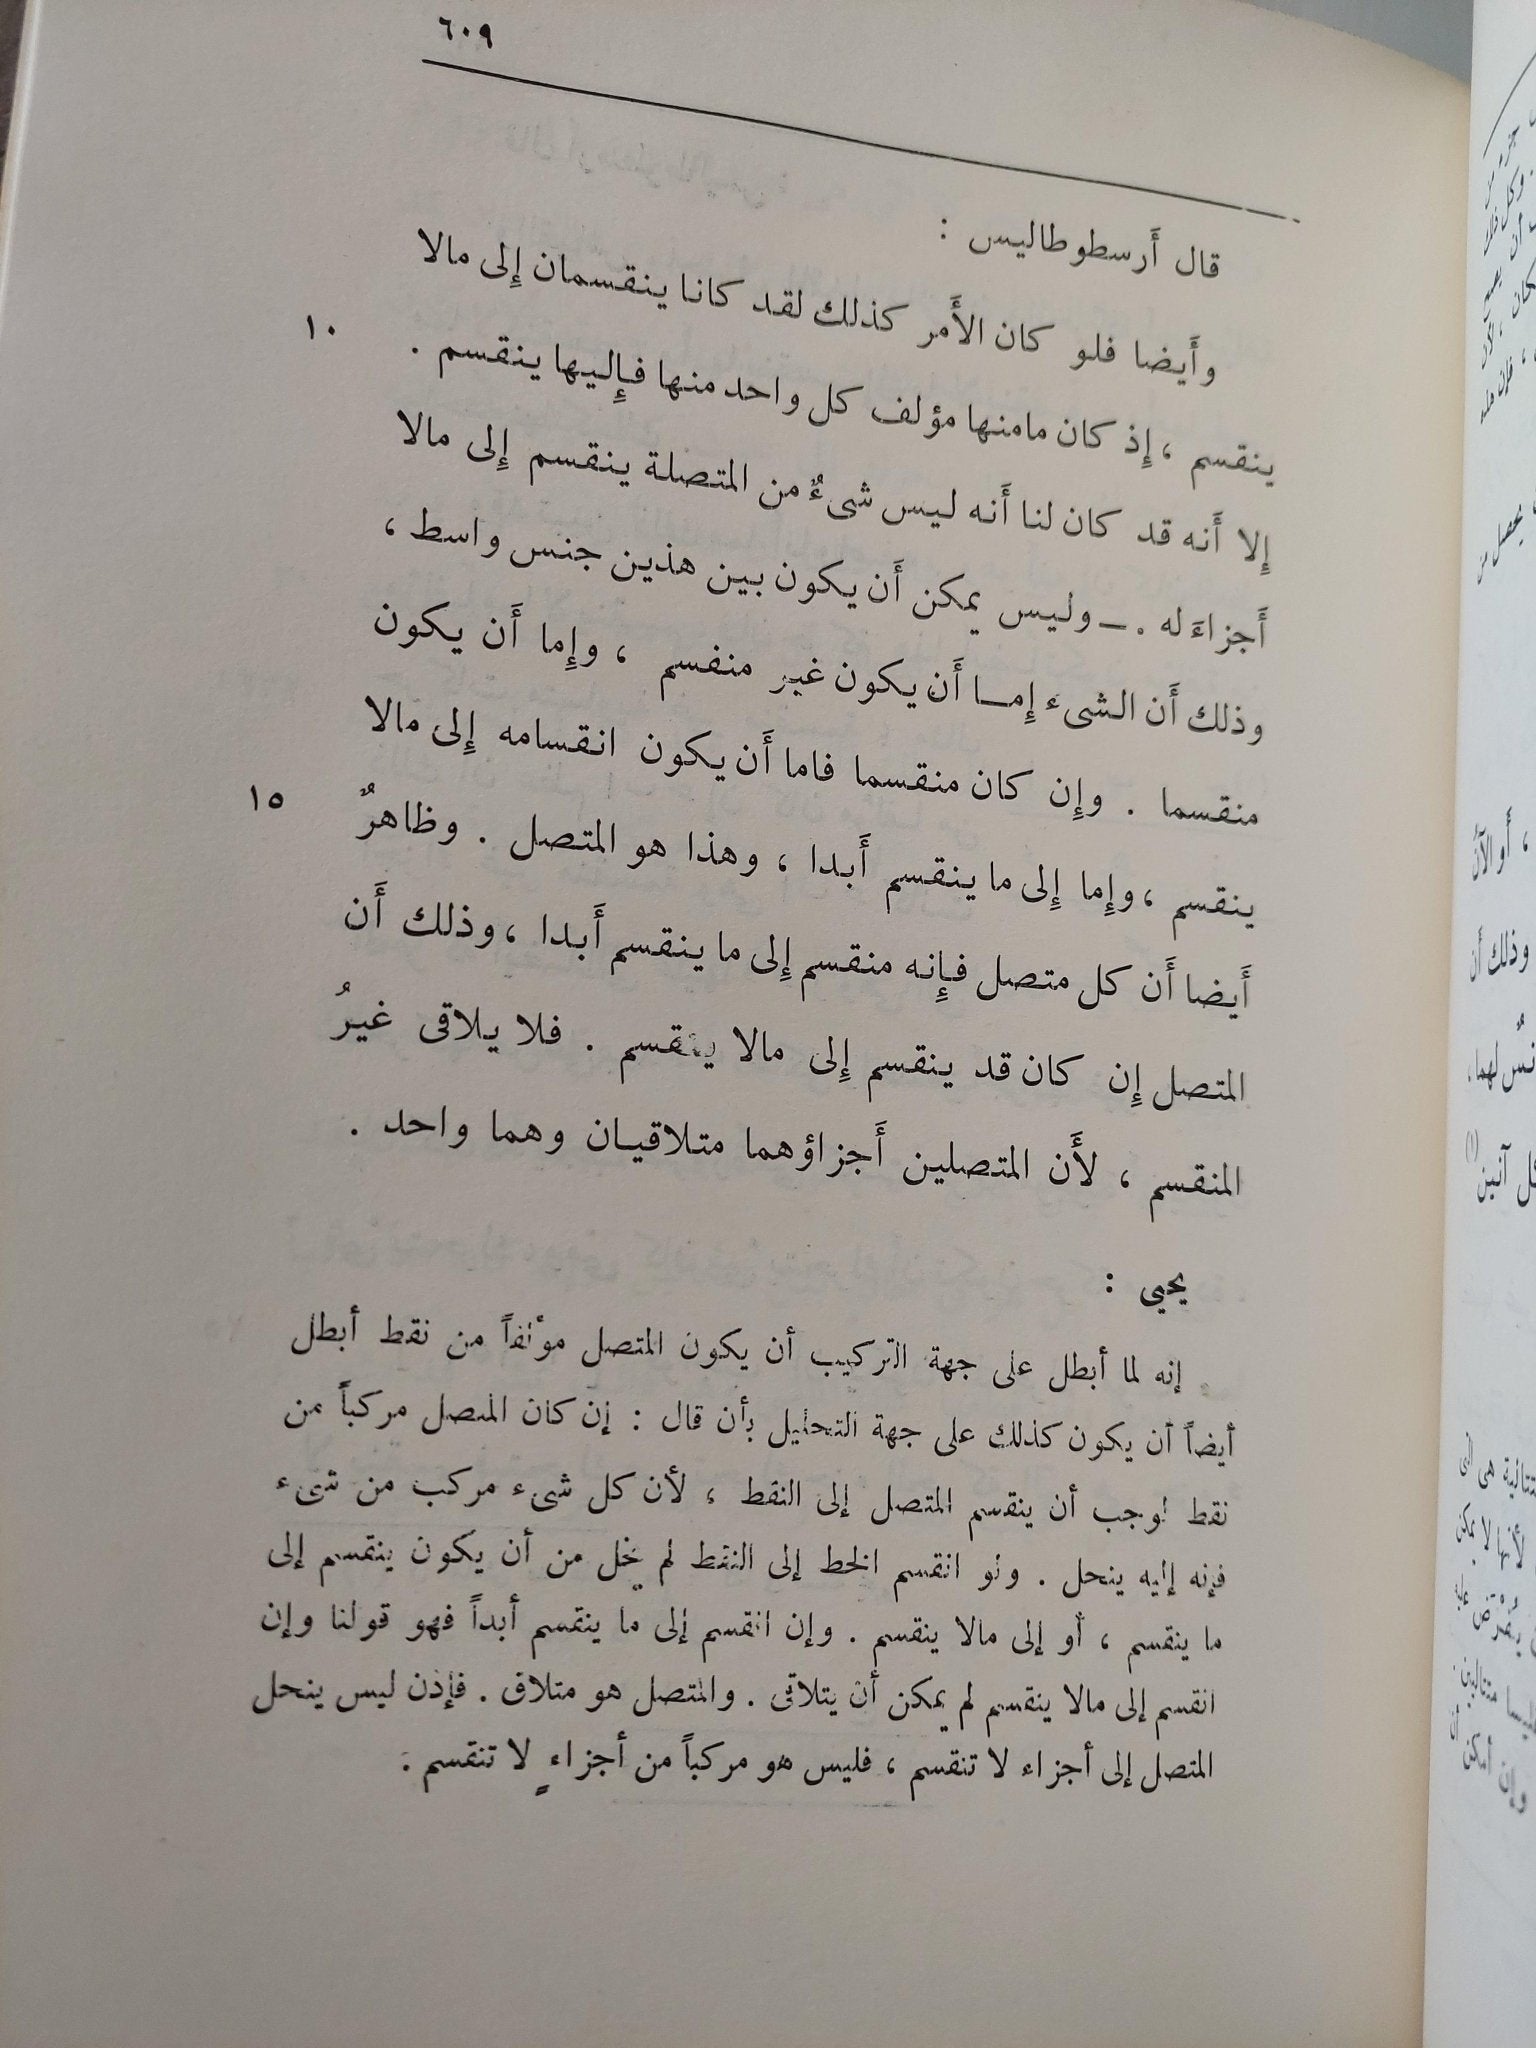 ٦٠٩
قال أَرسطوطاليس :
وأَيضا فلو كان الأَمر كذلك لقد كانا ينقسمان إِلى مالا
ينقسم ، إِذ كان مامنها مؤلف كل واحد منها فإِليها ينقسم . ١٠
إِلا أَنه قد كان لنا أَنه ليس شىءٌ من المتصلة ينقسم إِلى مالا
أَجزاءَ له . — وليس يمكن أَن يكون بين هذين جنس واسط ،
وذلك أَن الشىء إِما أَن يكون غير منفسم ، وإِما أَن يكون
منقسما . وإِن كان منقسما فاما أَن يكون انقسامه إِلى مالا
ينقسم ، وإِما إِلى ما ينقسم أَبدا ، وهذا هو المتصل . وظاهرٌ ١٥
أَيضا أَن كل متصل فإِنه منقسم إِلى ما ينقسم أَبدا ، وذلك أَن
المتصل إِن كان قد ينقسم إِلى مالا ينقسم . فلا يلاقى غيرُ
المنقسم ، لأَن المتصلين أَجزاؤهما متلاقيان وهما واحد .
يحيى :
إنه لما أبطل على جهة التركيب أن يكون المتصل مؤلفاً من نقط أبطل
أيضاً أن يكون كذلك على جهة التحليل بأن قال : إن كان المتصل مركباً من
نقط لوجب أن ينقسم المتصل إلى النقط ، لأن كل شىء مركب من شىء
فإنه إليه ينحل . ولو انقسم الخط إلى النقط لم يخل من أن يكون ينقسم إلى
ما ينقسم ، أو إلى مالا ينقسم . وإن انقسم إلى ما ينقسم أبداً فهو قولنا وإن
انقسم إلى مالا ينقسم لم يمكن أن يتلاقى . والمتصل هو متلاق . فإذن ليس ينحل
المتصل إلى أجزاء لا تنقسم ، فليس هو مركباً من أجزاءٍ لا تنقسم .